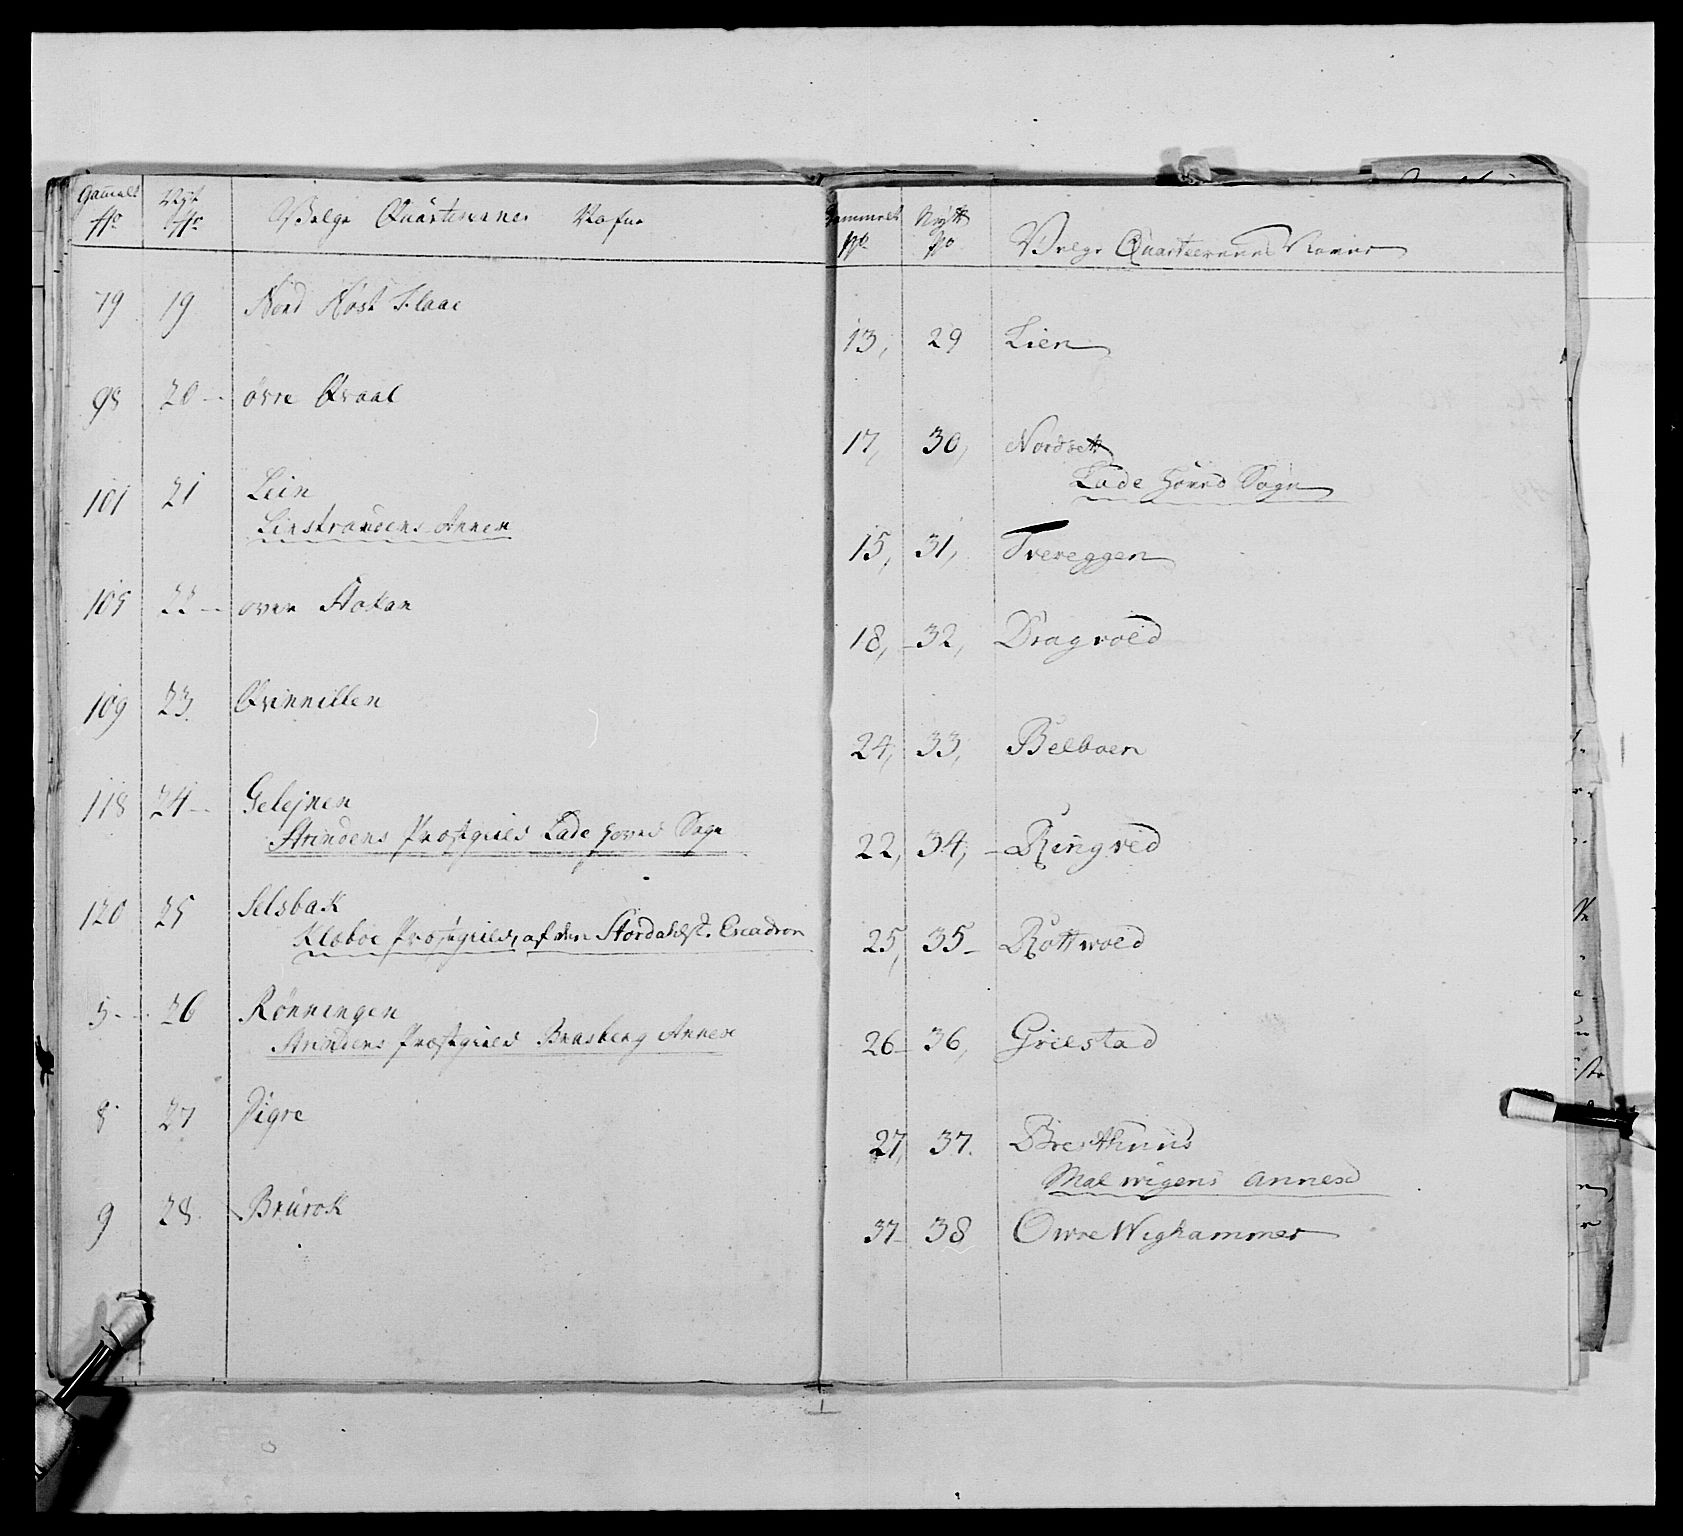 Gamalt No Nyt No Belge Quarterenes Nafne
79 19 Nord Høst Flaae
98 20 øvre Qvaal
101 21 Lein
Leinstrandens Annex
105 22 over Hokan
109 23. Qvennillen
118 24 Gelejnen
Strindens Præstgield Lade Hoved Sogn
120 25 Selsbak
Kleboe Præstgield, af den Stordahlst. Escadron
5 26 Rønningen
Strindens Præstgield Bratsberg Annex
8 27 Digre
9 28 Brurok
Gammelt No Nytt No Belge Quarteerenes Navne
13, 29 Lien
17, 30, Nordsett
Lade Hoved Sogn
15, 31, Tvereggen
18, 32, Dragvold
24, 33, Belboen
22, 34, Ringved
25, 35 Rottwold
26 36, Grilstad
27, 37. Bresthuus
Malwigens annex
37 38 Owre Wighammer